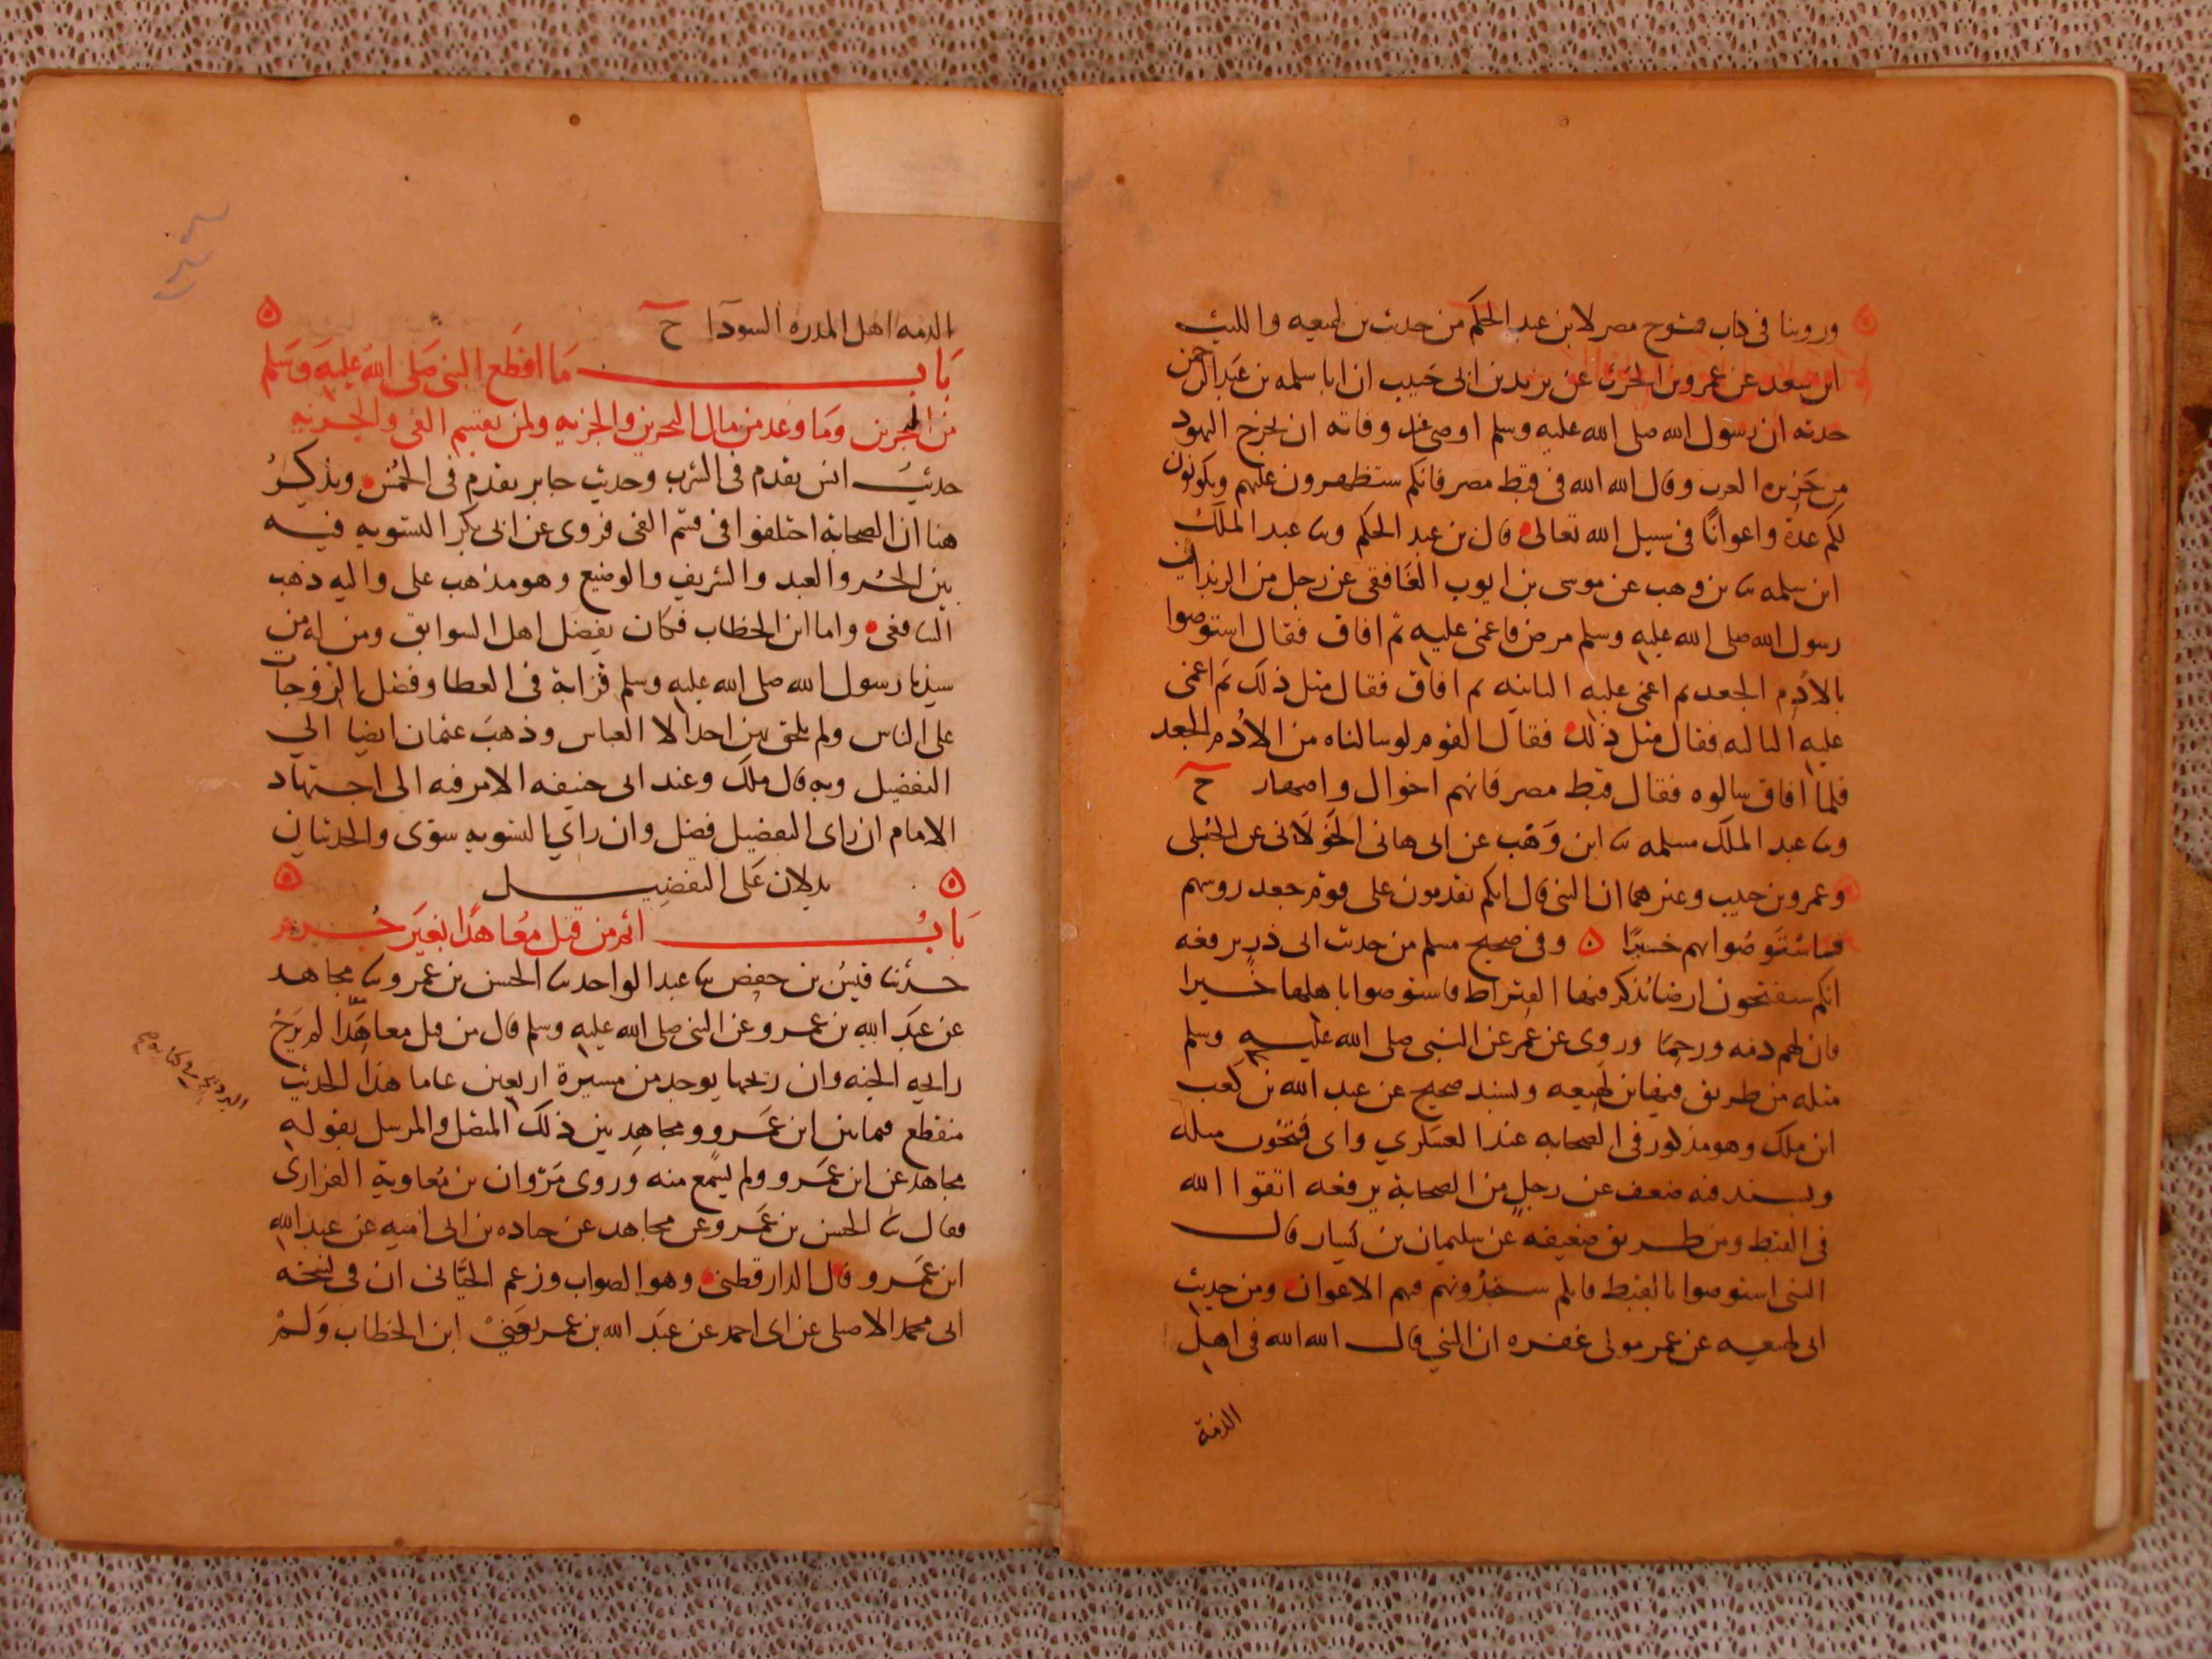 وروينا فى كتاب فتوح مصر لابن عبد الحكم من حديث بن لهيعه والليث
ابن سعد عن عمرو بن الحرث عن يزيد بن ابى حبيب ان ابا سلمه بن عبد الرحمن
حدثه ان رسول الله صلى الله عليه وسلم اوصى عند وفاته ان يخرج اليهود
من جزيره العرب وقال الله الله فى قبط مصر فانكم ستظهرون عليهم ويكونون
لكم عدة واعوانا فى سبيل الله تعالى قال بن عبد الحكم وثنا عبد الملك
ابن سلمه ثنا بن وهب عن موسى بن ايوب الغافقى عن رجل من الربذ ان
رسول الله صلى الله عليه وسلم مرض فاغمى عليه ثم افاق فقال استوصوا
بالادم الجعد ثم اغمى عليه الثانيه ثم افاق فقال مثل ذلك ثم اغمى
عليه الثالثه فقال مثل ذلك فقال القوم لو سالناه من الادم الجعد
فلما افاق سالوه فقال قبط مصر فانهم اخوال واصهار ح
وثنا عبد الملك مسلمه ثنا ابن وهب عن ابى هانى الخولانى عن الحبلى
وعمرو بن حريب وغيرهما ان النبى قال انكم تقدمون على قوم جعد روسهم
فاستوصوا بهم خيرا ه وفى صحيح مسلم من حديث ابى ذر يرفعه
انكم ستفتحون ارضا يذكر فيها القيراط فاستوصوا باهلها خيرا
فان لهم ذمه ورحما وروى عن عمر عن النبى صلى الله عليه وسلم
مثله من طريق فيها بن لهيعه وبسند صحيح عن عبد الله بن كعب
ابن ملك وهو مذكور فى الصحابه عند العسكري واى فتحون مثله
وبسند فيه ضعف عن رجل من الصحابة يرفعه اتقوا الله
فى القبط ومن طريق ضعيفه عن سليمان بن يسار قال
النبى استوصوا بالقبط فانكم ستجدونهم نعم الاعوان ومن حديث
ابى لهيعه عن عمر مولى غفره ان النبي قال الله الله فى اهل
الذمة
الذمه اهل المدره السودا ح
باب ما اقطع النبى صلى الله عليه وسلم
من البحرين وما وعد من مال البحرين والجزيه ولمن يقسم الفى والجزيه
حديث انس تقدم فى الشرب وحديث جابر تقدم فى الخمس ونذكر
هنا ان الصحابة اختلفوا فى قسم الفى فروى عن ابى بكر التسويه فيه
بين الحر والعبد والشريف والوضيع وهو مذهب على واليه ذهب
الشافعى واما ابن الخطاب فكان يفضل اهل السوابق ومن له من
سيدنا رسول الله صلى الله عليه وسلم قرابة فى العطا وفضل الزوجات
على الناس ولم يلحق بهن احدا الا العباس وذهب عثمان ايضا الي
التفضيل وبه قال ملك وعند ابى حنيفه الامر فيه الى اجتهاد
الامام ان راى التفضيل فضل وان راي التسويه سوى والحديثان
يدلان على التفضيل
باب اثم من قتل معاهدا بغير جرم
حدثنا قيس بن حفص ثنا عبد الواحد ثنا الحسن بن عمرو ثنا مجاهد
عن عبد الله بن عمرو عن النبى صلى الله عليه وسلم قال من قتل معاهدا لم يرح
رايحه الجنه وان ريحها يوجد من مسيرة اربعين عاما هذا الحديث
منقطع فيما بين ابن عمرو ومجاهد بين ذلك المتصل والمرسل بقوله
مجاهد عن ابن عمرو ولم يسمع منه وروى مروان بن معاوية الفزارى
فقال ثنا الحسن بن عمرو عن مجاهد عن جناده بن ابى اميه عن عبد الله
ابن عمرو قال الدارقطنى وهو الصواب وزعم الجيانى ان فى نسخه
ابى محمد الاصيلى عن ابى احمد عن عبد الله بن عمر يعنى ابن الخطاب ولم